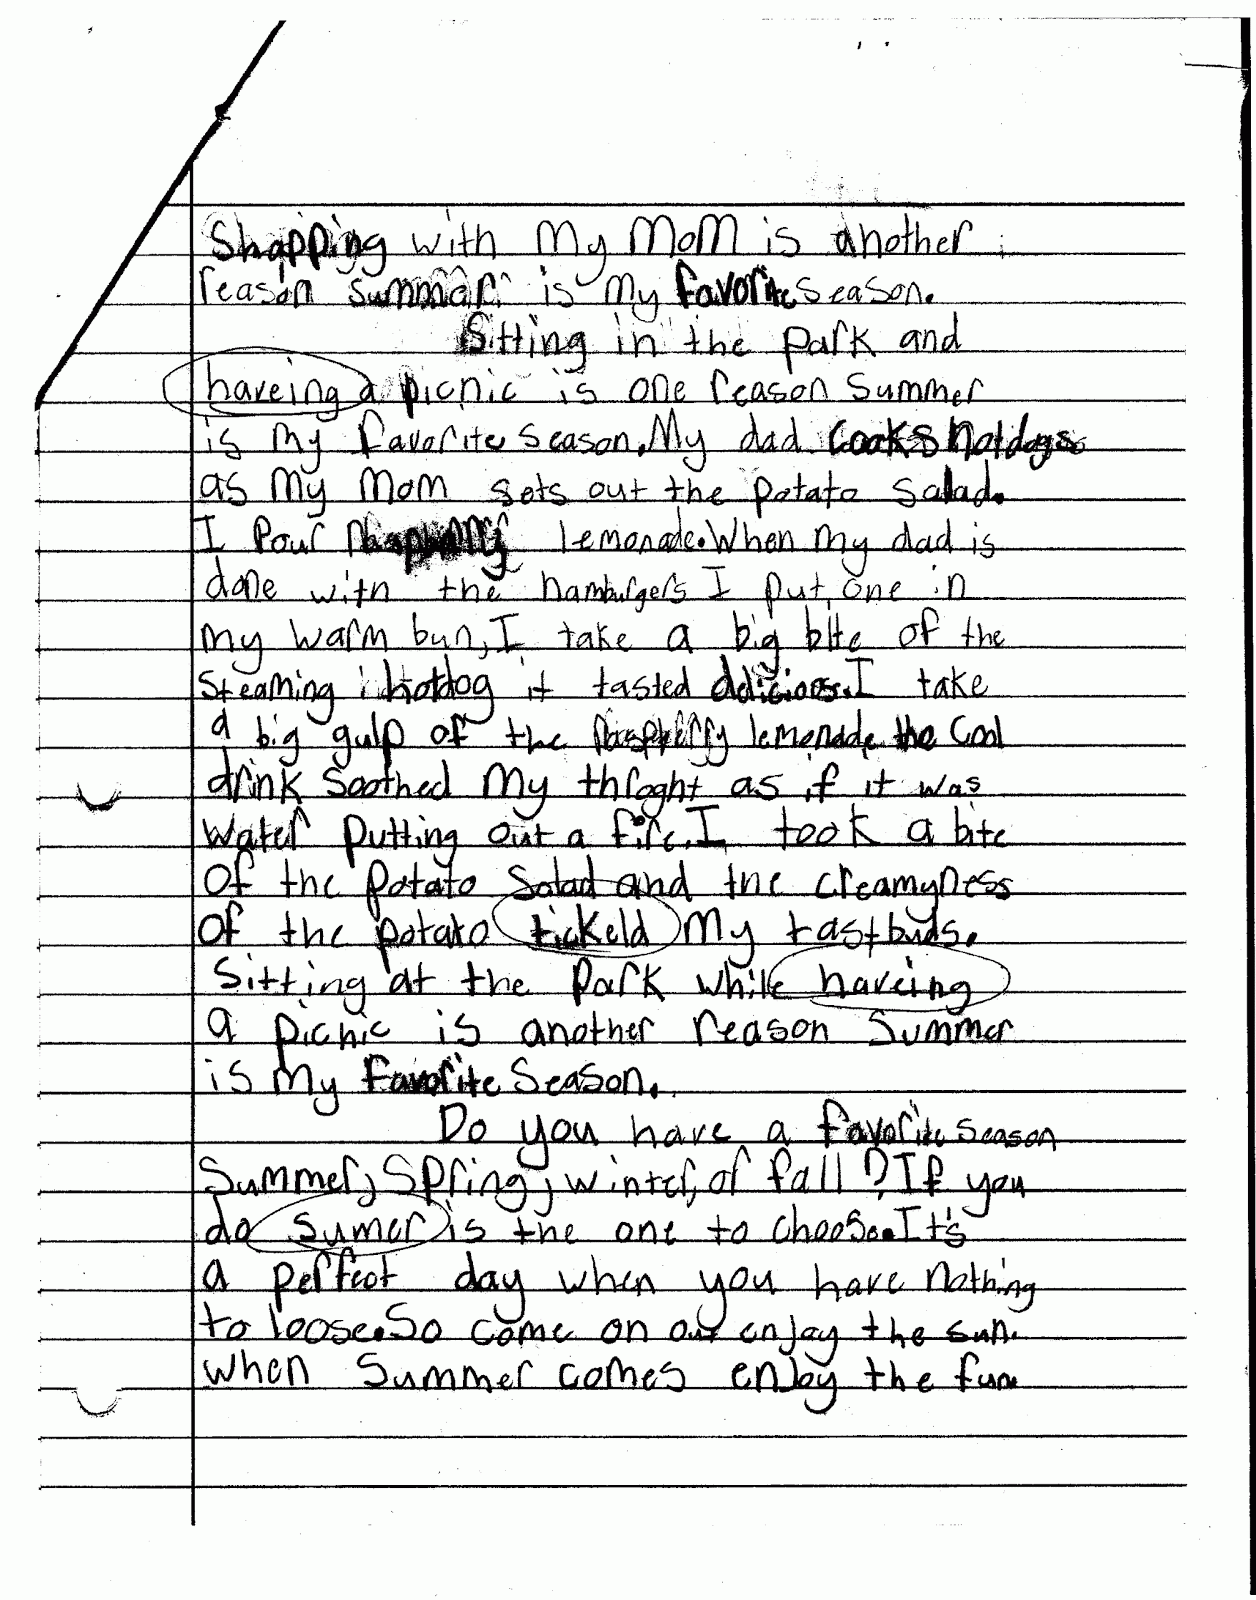 Shopping with my mom is another
reason summar is my favorite season.
Sitting in the park and
haveing a picnic is one reason summer
is my favorite season. My dad cooks hotdogs
as my mom sets out the potato salad.
I Pour raspberry lemonade. When my dad is
done with the hamburgers I put one in
my warm bun, I take a big bite of the
steaming hotdog it tasted delicious. I take
a big gulp of the raspberry lemonade the cool
drink soothed my throght as if it was
water putting out a fire. I took a bite
of the potato salad and the creamyness
of the potato tickeld my tastbuds.
Sitting at the park while haveing
a picnic is another reason summer
is my favorite season.
Do you have a favorite season
Summer, Spring, winter, or fall? If you
do sumer is the one to choose. It's
a perfect day when you have nothing
to loose. So come on out enjoy the sun.
when summer comes enjoy the fun